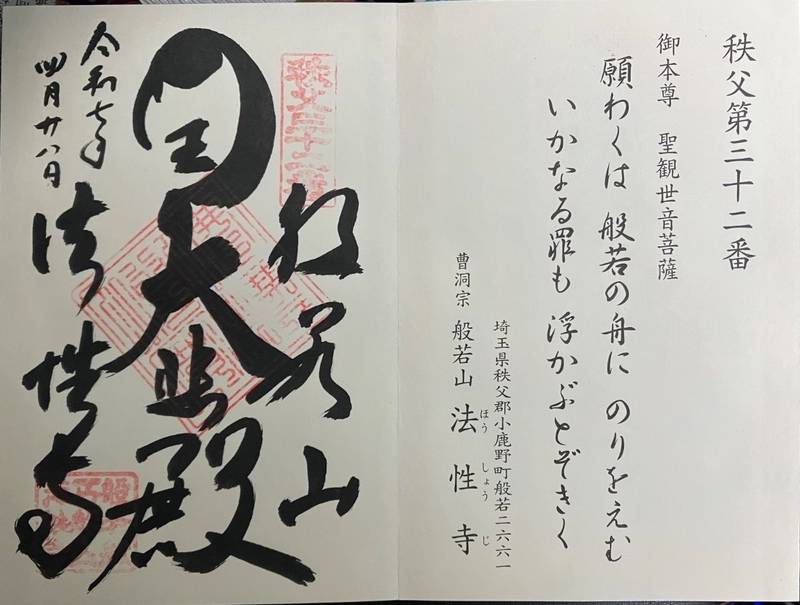 秩父第三十二番
御本尊　聖観世音菩薩
願わくは　般若の舟に　のりをえむ
いかなる罪も　浮かぶとぞきく
埼玉県秩父郡小鹿野町般若二六六一
曹洞宗　般若山　法性寺
ほう　しょう　じ
秩父三十二番
般若山
圓大悲殿
令和七年
四月廿八日
法性寺